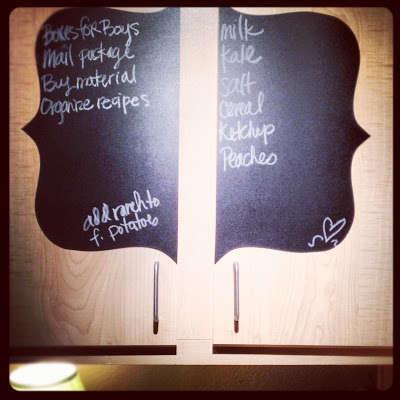 Boxes for Boys
Mail package
Buy material
Organize recipes
add ranch to
f. potatoes
milk
kale
salt
cereal
Ketchup
Peaches